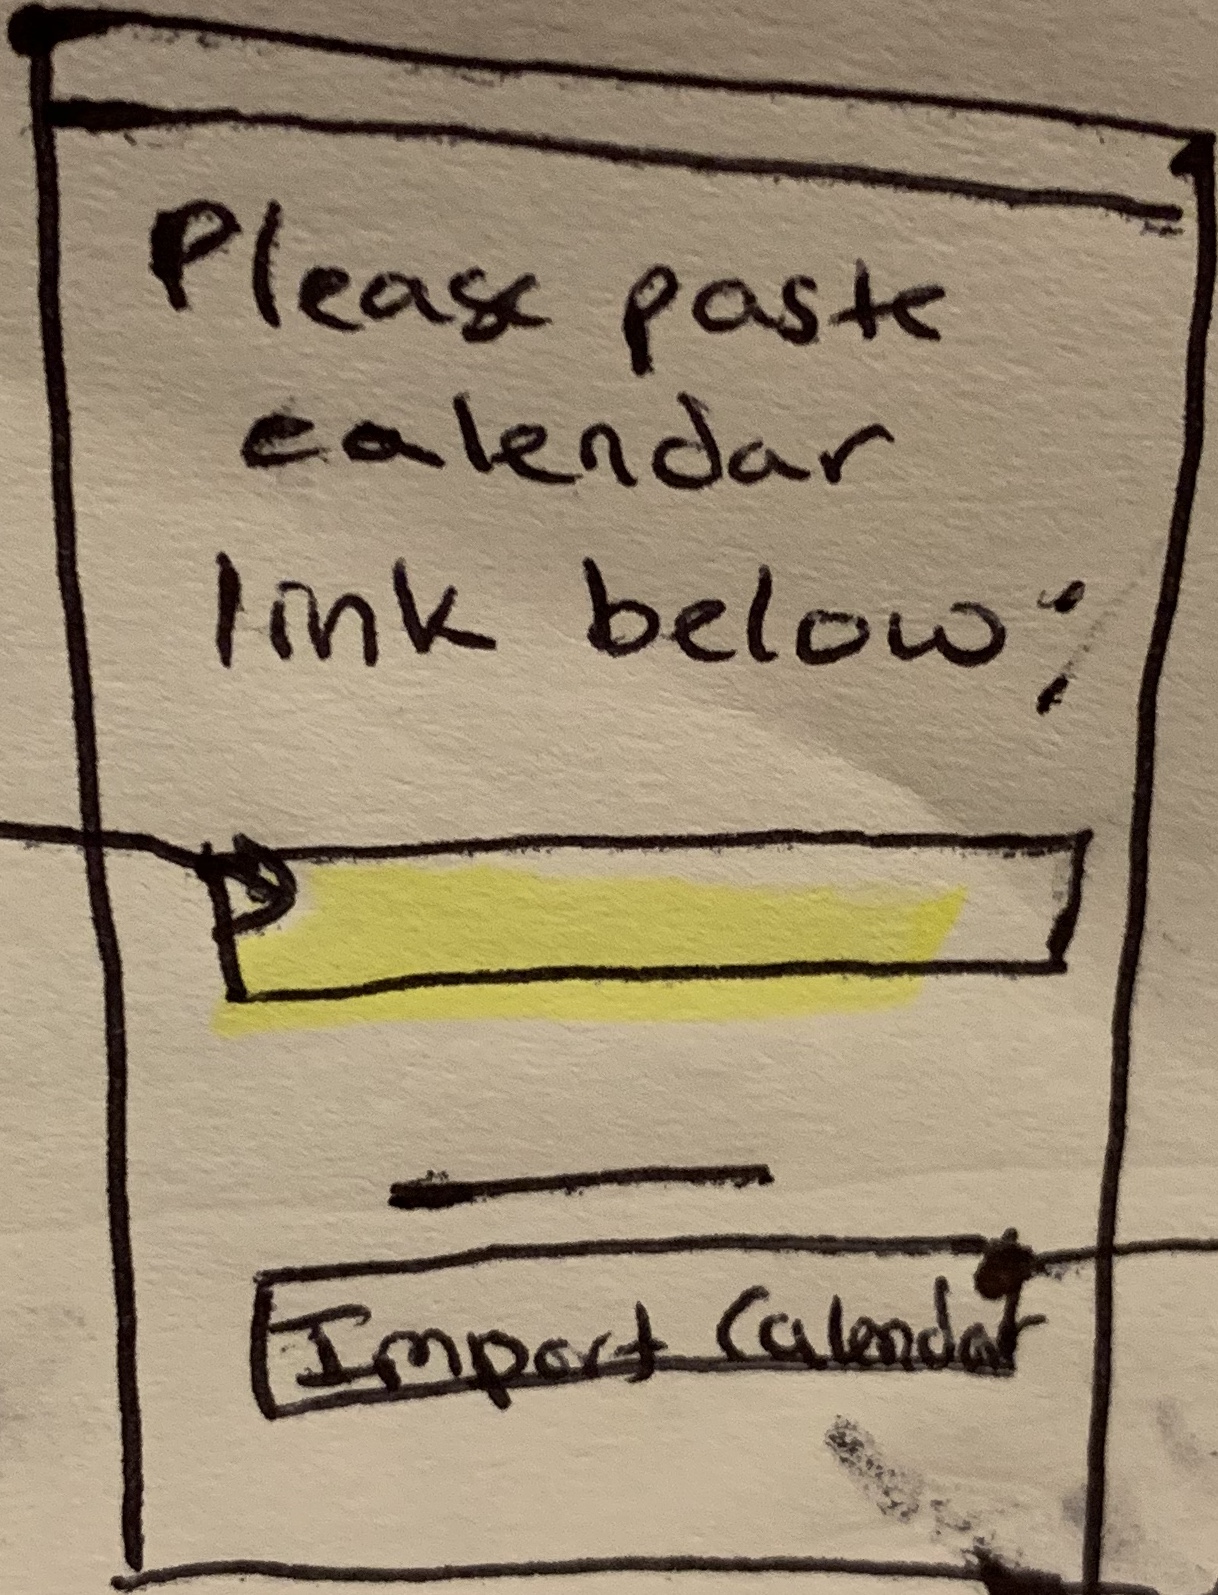 Please paste
calendar
link below:
Import Calendar